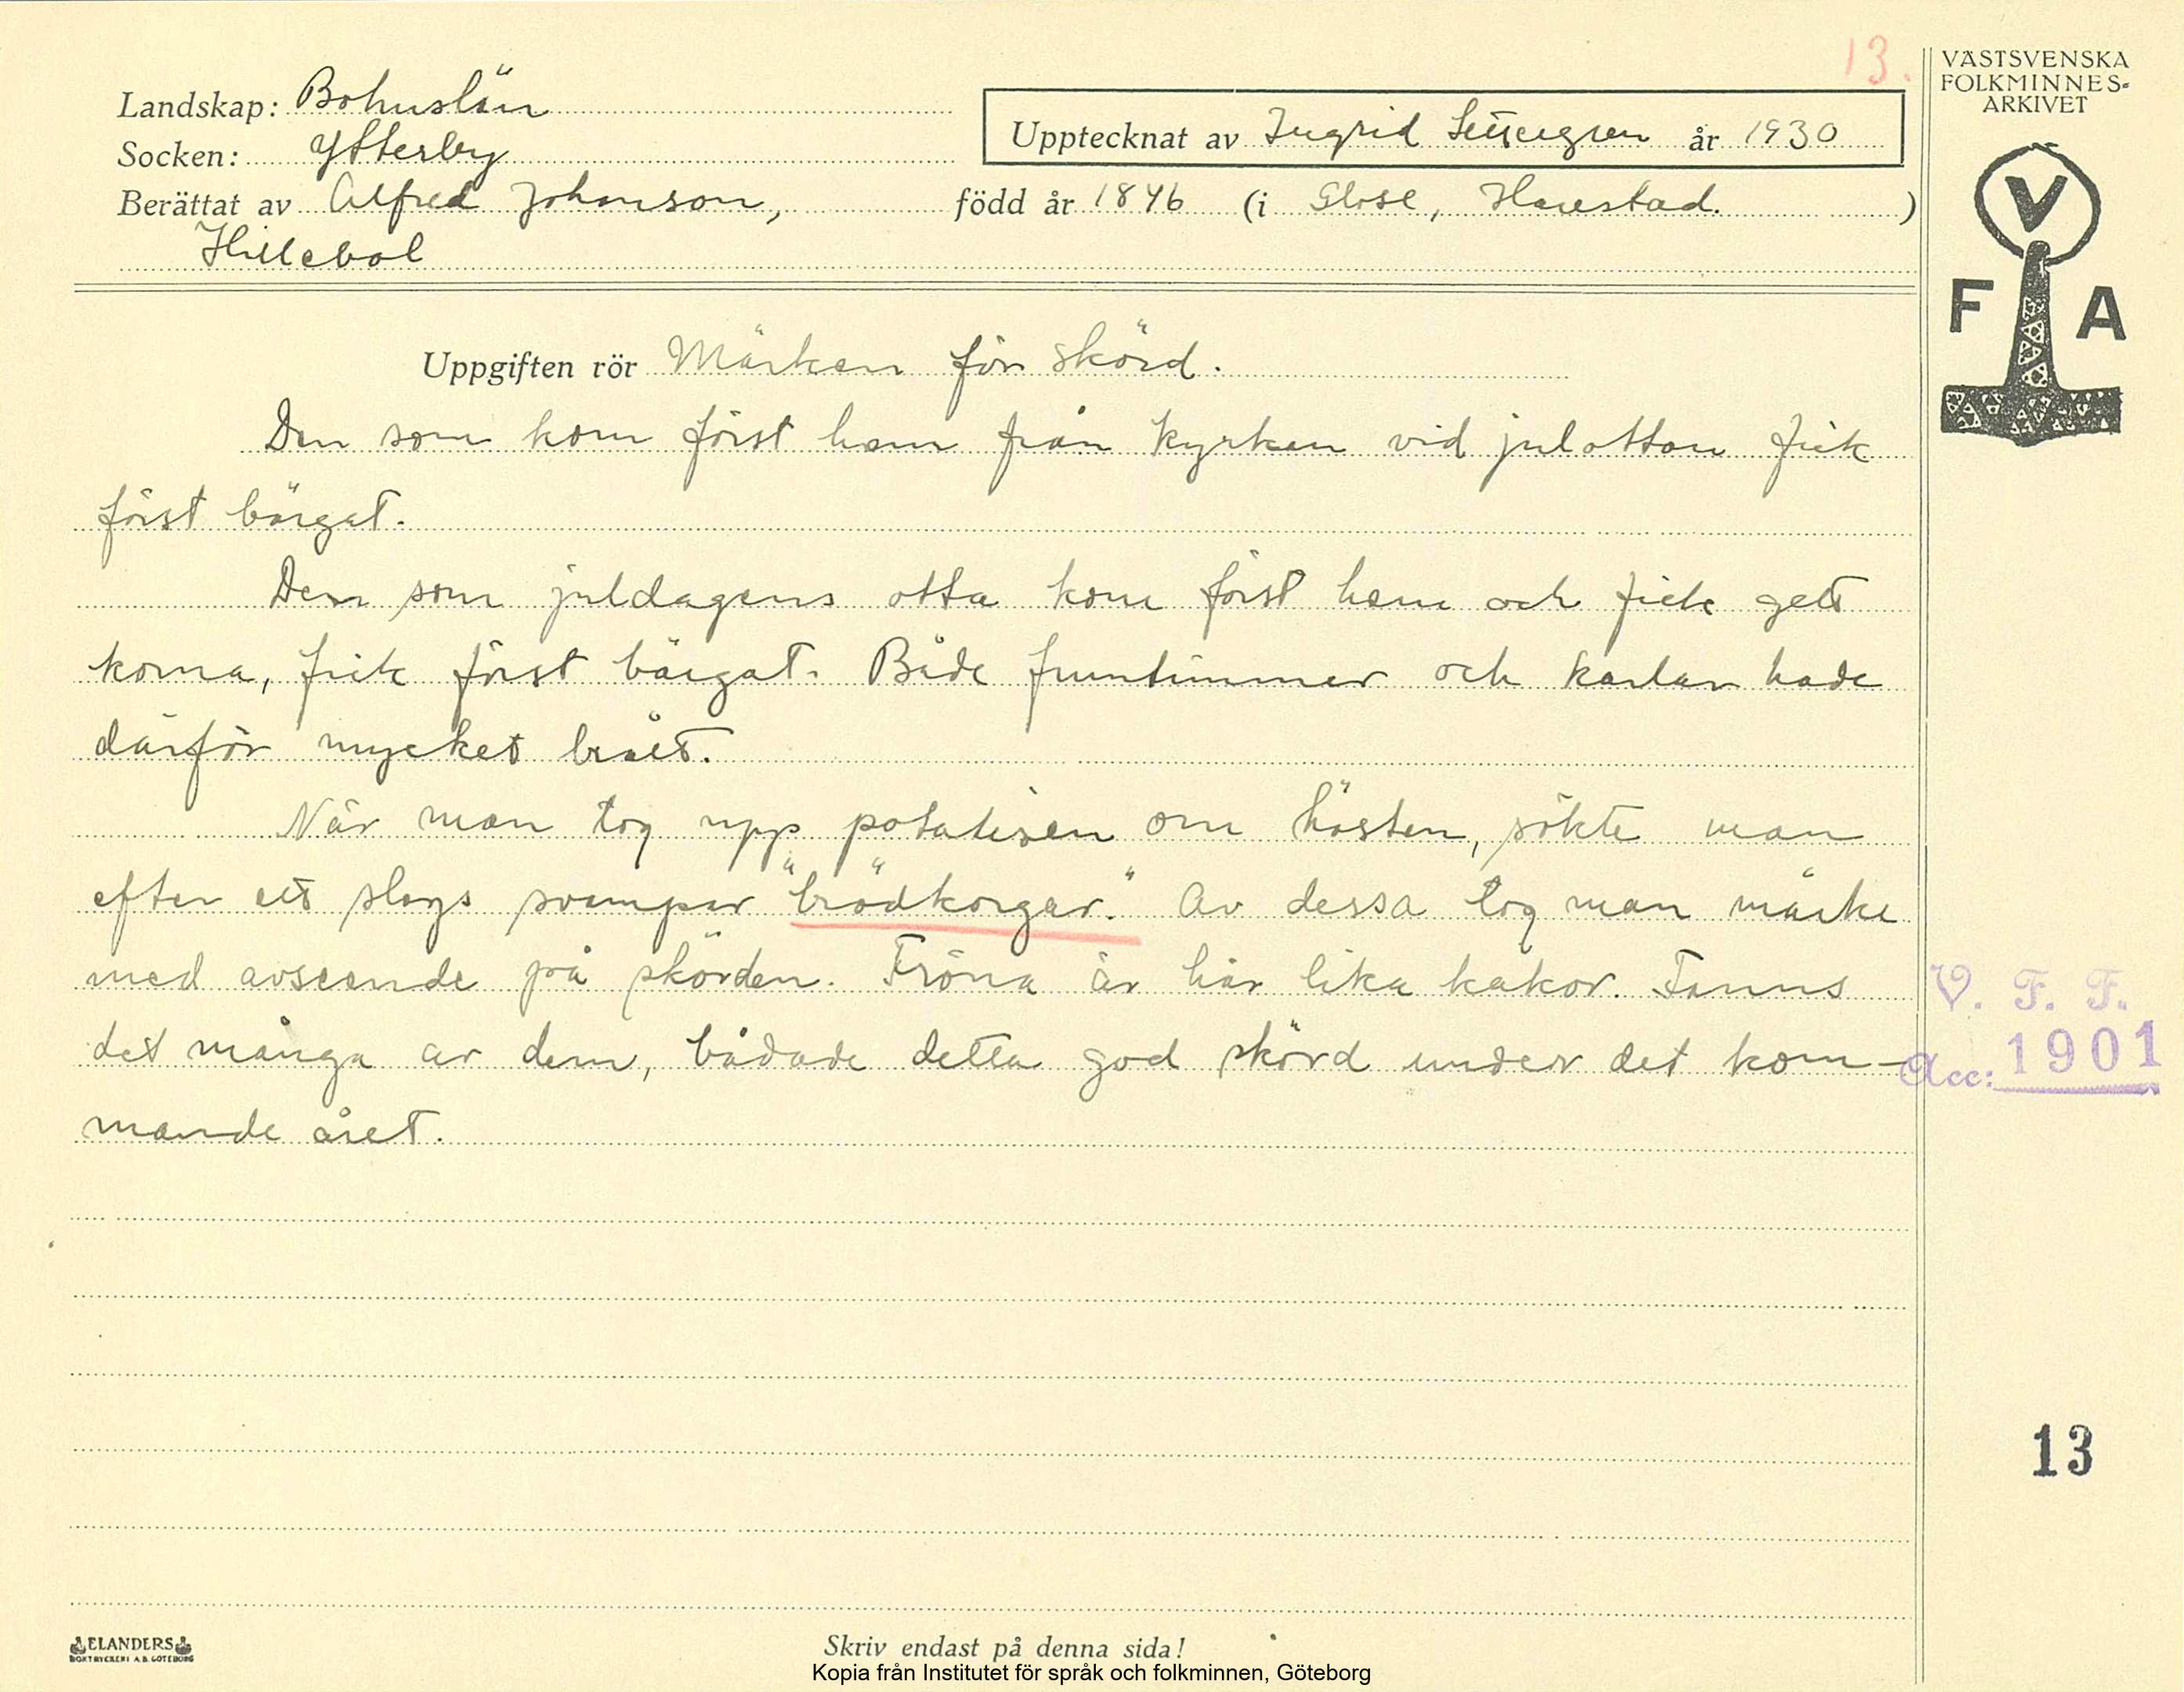 13.
VÄSTSVENSKA
FOLKMINNES-
ARKIVET
Landskap: Bohuslän
Upptecknat av Ingrid år 1930
Socken: Ytterby
Berättat av Alfred Johanson, född år 1846 (i Glose, Harestad.)
Hillebol
V
F A
Uppgiften rör Märken för skörd.
Den som kom först hem från kyrkan vid julottan fick
först bärgat.
Den som juldagens otta kom först hem och fick gett
korna, fick först bärgat. Både fruntimmer och karlar hade
därför mycket brått.
När man tog upp potatisen om hösten, sökte man
efter ett slags svampar "brödkorgar." Av dessa tog man märke
med avseende på skörden. Fröna är här lika kakor. Fanns
det många av dem, bådade detta god skörd under det kom-
mande året.
V. F. F.
Acc: 1901
13
ELANDERS
BOKTRYCKERI A.B. GÖTEBORG
Skriv endast på denna sida!
Kopia från Institutet för språk och folkminnen, Göteborg